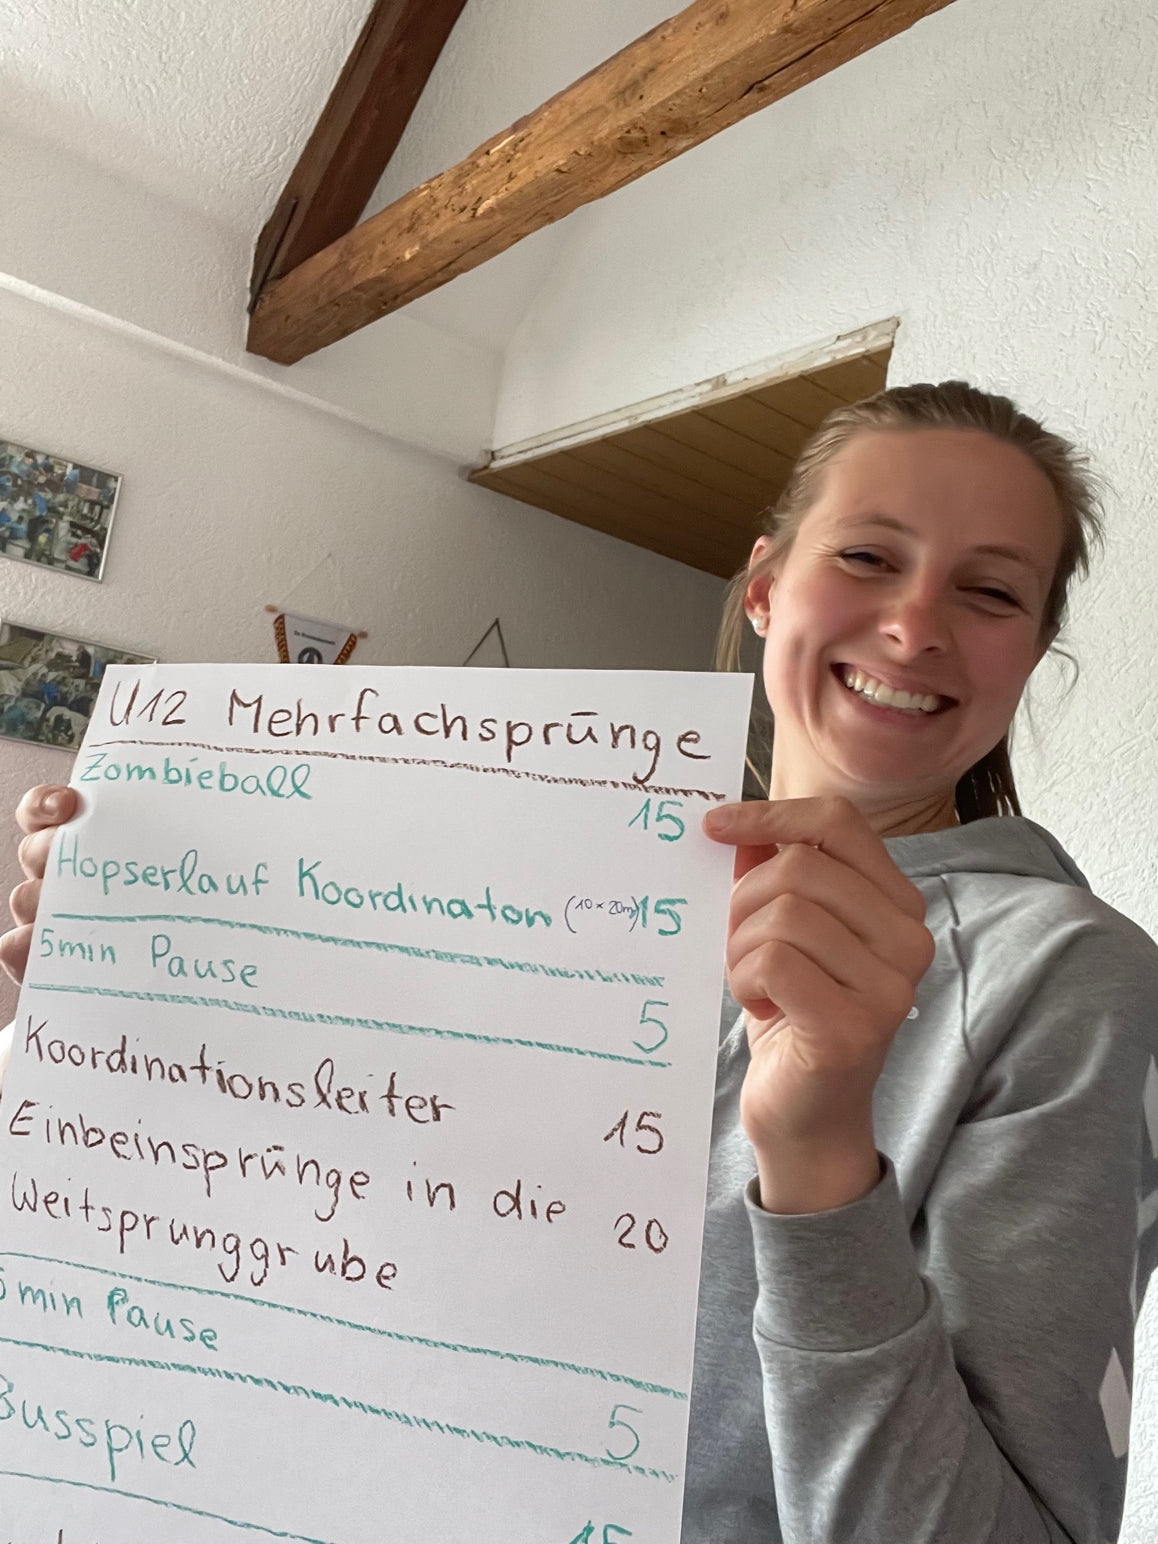 U12 Mehrfachsprünge
Zombieball
15
Hopserlauf Koordinaton (10 × 20m) 15
5min Pause
5
Koordinationsleiter
15
Einbeinsprünge in die
Weitsprunggrube
20
5 min Pause
5
Busspiel
15